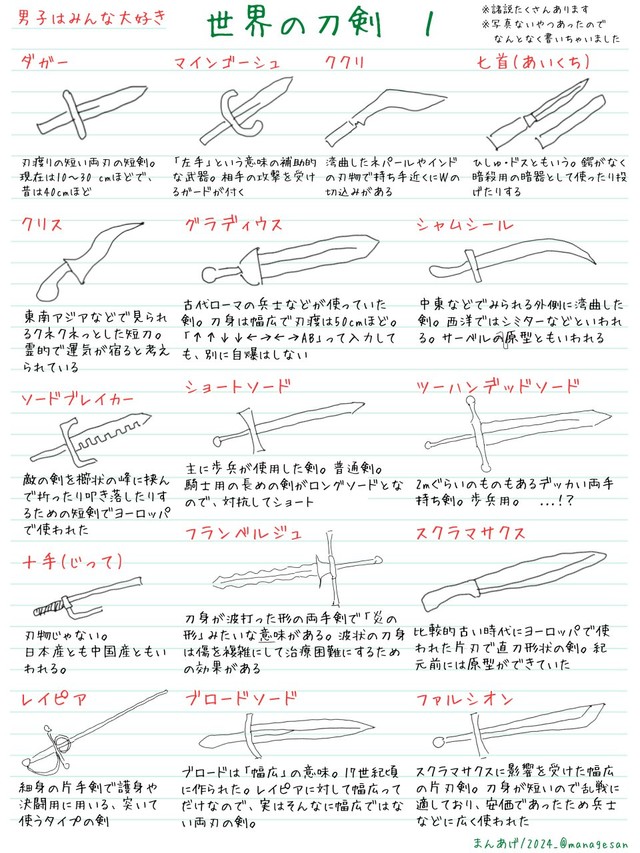 男子はみんな大好き
世界の刀剣 1
※諸説たくさんあります
※写真ないやつあったので
なんとなく書いちゃいました
ダガー
刃渡りの短い両刃の短剣。
現在は10〜30cmほどで、
昔は40cmほど
マインゴーシュ
「左手」という意味の補助的
な武器。相手の攻撃を受け
るガードが付く
ククリ
湾曲したネパールやインド
の刃物で持ち手近くにWの
切込みがある
七首(あいくち)
ひしゅ・ドスともいう。鍔がなく
暗殺用の暗器として使ったり投
げたりする
クリス
東南アジアなどで見られ
るクネクネっとした短刀。
霊的で運気が宿ると考え
られている
グラディウス
古代ローマの兵士などが使っていた
剣。刀身は幅広で刃渡は50cmほど。
「↑↑↓↓←→←→AB」って入力して
も、別に自爆はしない
シャムシール
中東などでみられる外側に湾曲した
剣。西洋ではシミターなどといわれ
る。サーベルの原型ともいわれる
ソードブレイカー
敵の剣を櫛状の峰に挟ん
で折ったり叩き落したりす
るための短剣でヨーロッパ
で使われた
ショートソード
主に歩兵が使用した剣。普通剣。
騎士用の長めの剣がロングソードとな
ので、対抗してショート
ツーハンデッドソード
2mぐらいのものもあるデッカい両手
持ち剣。歩兵用。 ...!?
十手(じって)
刃物じゃない。
日本産とも中国産ともい
われる。
フランベルジュ
刀身が波打った形の両手剣で「炎の
形」みたいな意味がある。波状の刀身
は傷を複雑にして治療困難にするため
の効果がある
スクラマサクス
比較的古い時代にヨーロッパで使
われた片刃で直刀形状の剣。紀
元前には原型ができていた
レイピア
細身の片手剣で護身や
決闘用に用いる、突いて
使うタイプの剣
ブロードソード
ブロードは「幅広」の意味。17世紀頃
に作られた。レイピアに対して幅広って
だけなので、実はそんなに幅広ではな
い両刃の剣。
ファルシオン
スクラマサクスに影響を受けた幅広
の片刃剣。刀身が短いので乱戦に
適しており、安価であったため兵士
などに広く使われた
まんあげ/2024_@managesan